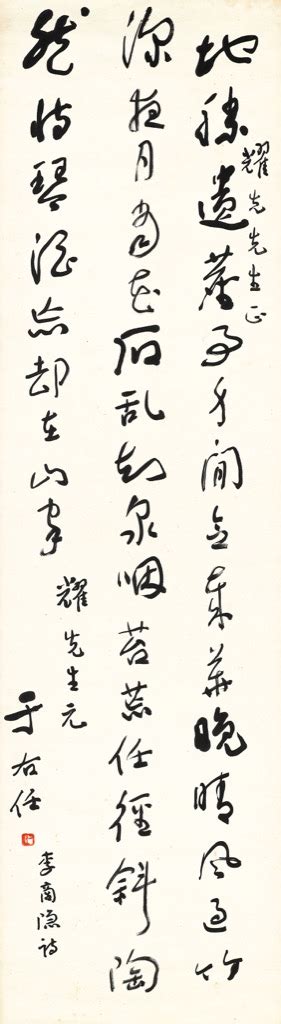 地勝遺塵事身閒念歲華晚晴風過竹
耀先先生正
深夜月當花石乱知泉咽苔荒任徑斜陶
然恃琴酒忘却在山家
耀先生元
于右任
李商隱詩